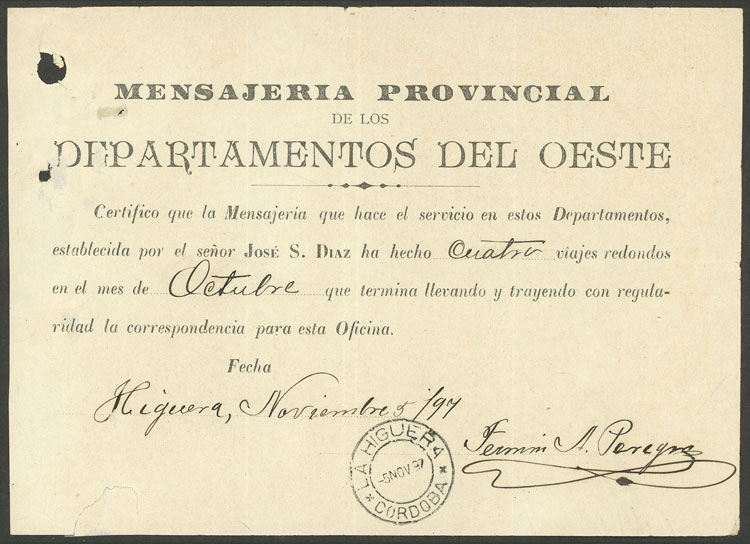 MENSAJERIA PROVINCIAL
DE LOS
DEPARTAMENTOS DEL OESTE
Certifico que la Mensajería que hace el servicio en estos Departamentos,
establecida por el señor JOSÉ S. DIAZ ha hecho Cuatro viajes redondos
en el mes de Octubre que termina llevando y trayendo con regula-
ridad la correspondencia para esta Oficina.
Fecha
Higuera, Noviembre 5/97
Fermin A.
LA HIGUERA
-5NOV 97
* CORDOBA *